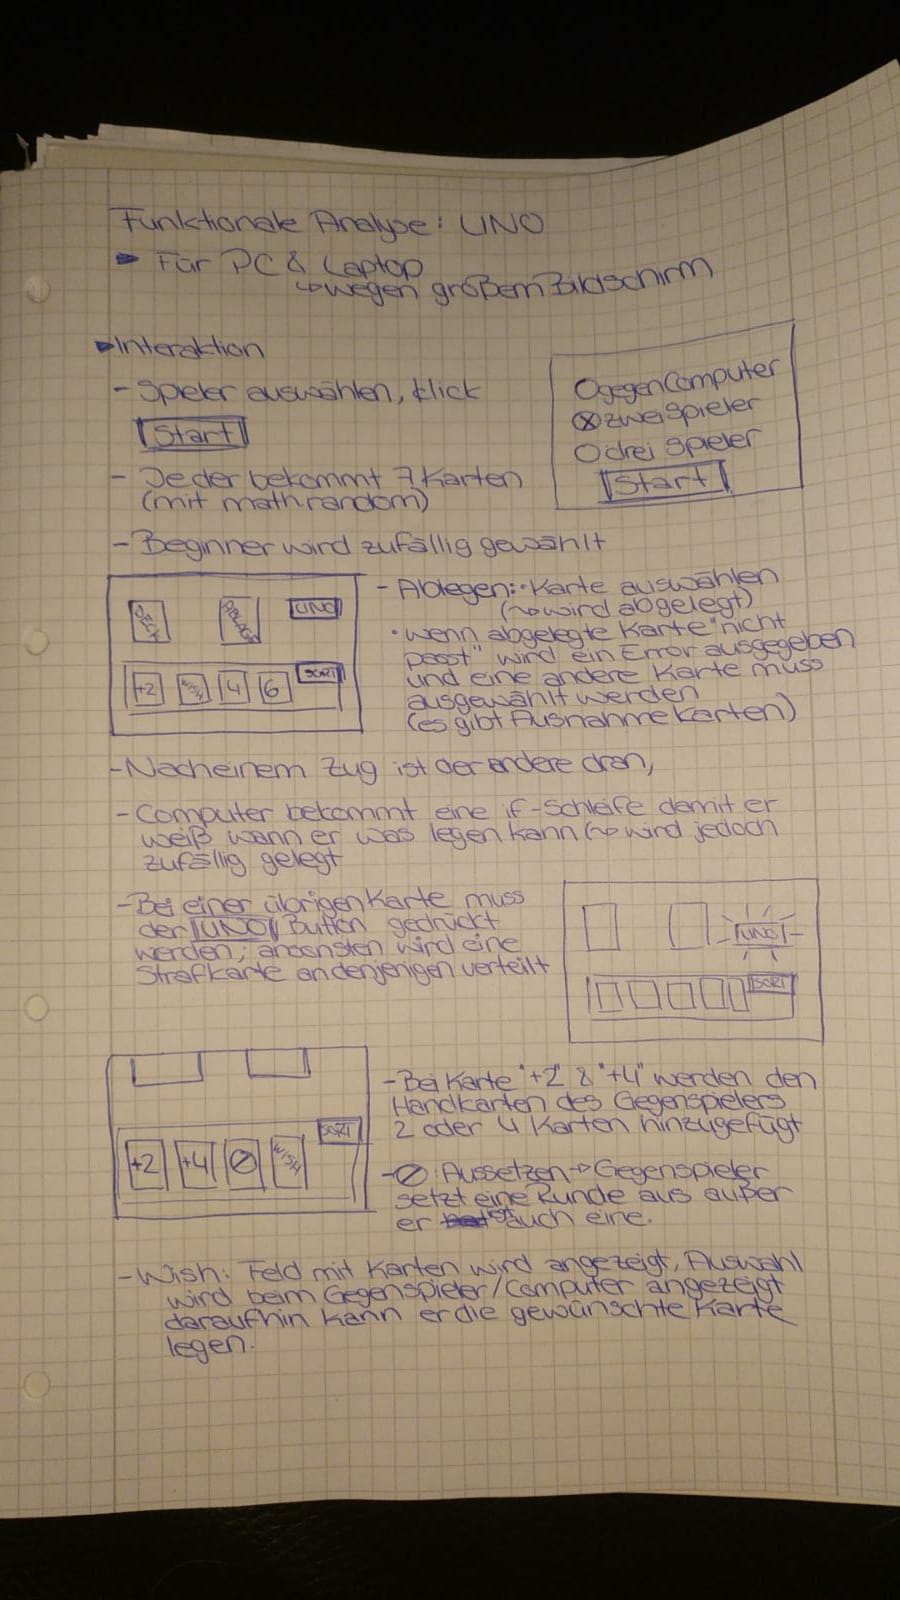 Funktionale Analyse: UNO
Für PC & Laptop
↳ wegen großem Bildschirm
Interaktion
- Spieler auswählen, klick
Start
- Jeder bekommt 7 Karten
(mit math.random)
O gegen Computer
⊗ zwei Spieler
O drei Spieler
Start
- Beginner wird zufällig gewählt
UNO
+2
4
6
SORT
- Ablegen: · Karte auswählen
(↝ wird abgelegt)
· wenn abgelegte Karte "nicht
passt" wird ein Error ausgegeben
und eine andere Karte muss
ausgewählt werden
(es gibt Ausnahmekarten)
- Nach einem Zug ist der andere dran,
- Computer bekommt eine if-Schleife damit er
weiß wann er was legen kann (↝ wird jedoch
zufällig gelegt
- Bei einer übrigen Karte muss
der UNO Button gedrückt
werden, ansonsten wird eine
Strafkarte an denjenigen verteilt
UNO
SORT
SORT
+2
+4
⊘
- Bei Karte "+2" & "+4" werden den
Handkarten des Gegenspielers
2 oder 4 Karten hinzugefügt
- ⊘: Aussetzen → Gegenspieler
setzt eine Runde aus außer
er auch eine.
- Wish: Feld mit Karten wird angezeigt, Auswahl
wird beim Gegenspieler/Computer angezeigt
daraufhin kann er die gewünschte Karte
legen.